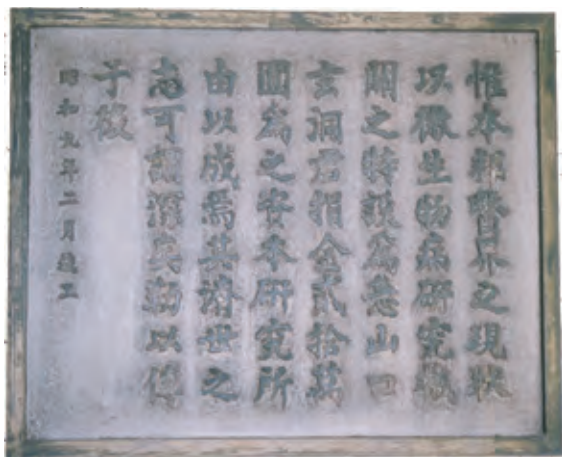 惟本邦醫界之現状
以微生物病研究機
關之特設爲急山口
玄洞君捐金貳拾萬
圓為之資本研究所
由以成焉其濟世之
志可謂深矣勒以傳
于後
昭和九年二月竣工